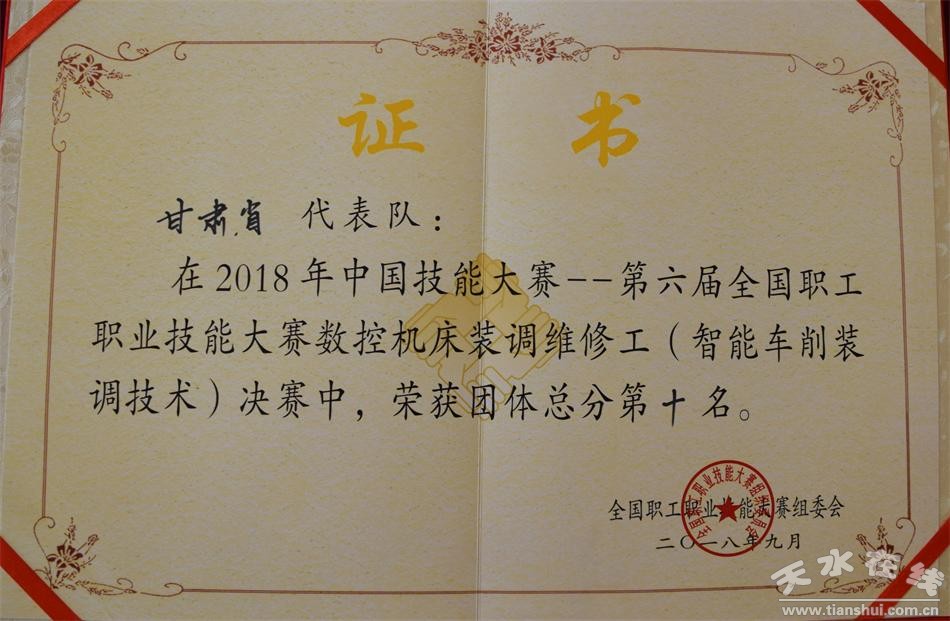 证书
甘肃省 代表队：
在2018年中国技能大赛--第六届全国职工
职业技能大赛数控机床装调维修工（智能车削装
调技术）决赛中，荣获团体总分第十名。
全国职工职业技能大赛组委会
全国职工职业技能大赛组织委员会
二〇一八年九月
天水在线
www.tianshui.com.cn